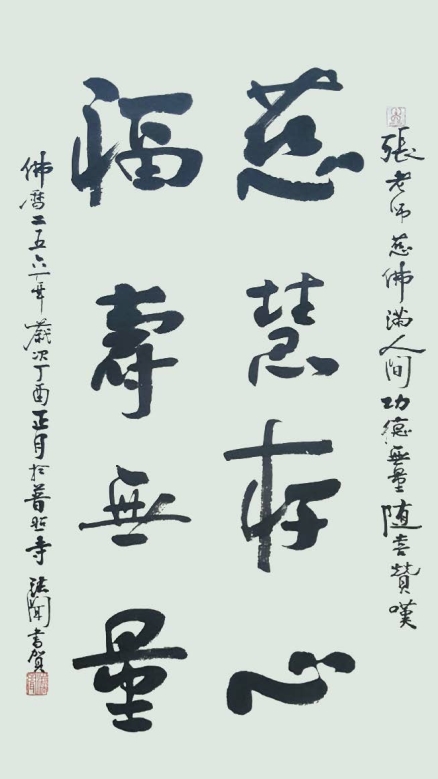 張老师慈佛满人间功德無量随喜赞嘆
慈慧存心
福壽無量
佛曆二五六一年歲次丁酉正月於普照寺法闻書贺